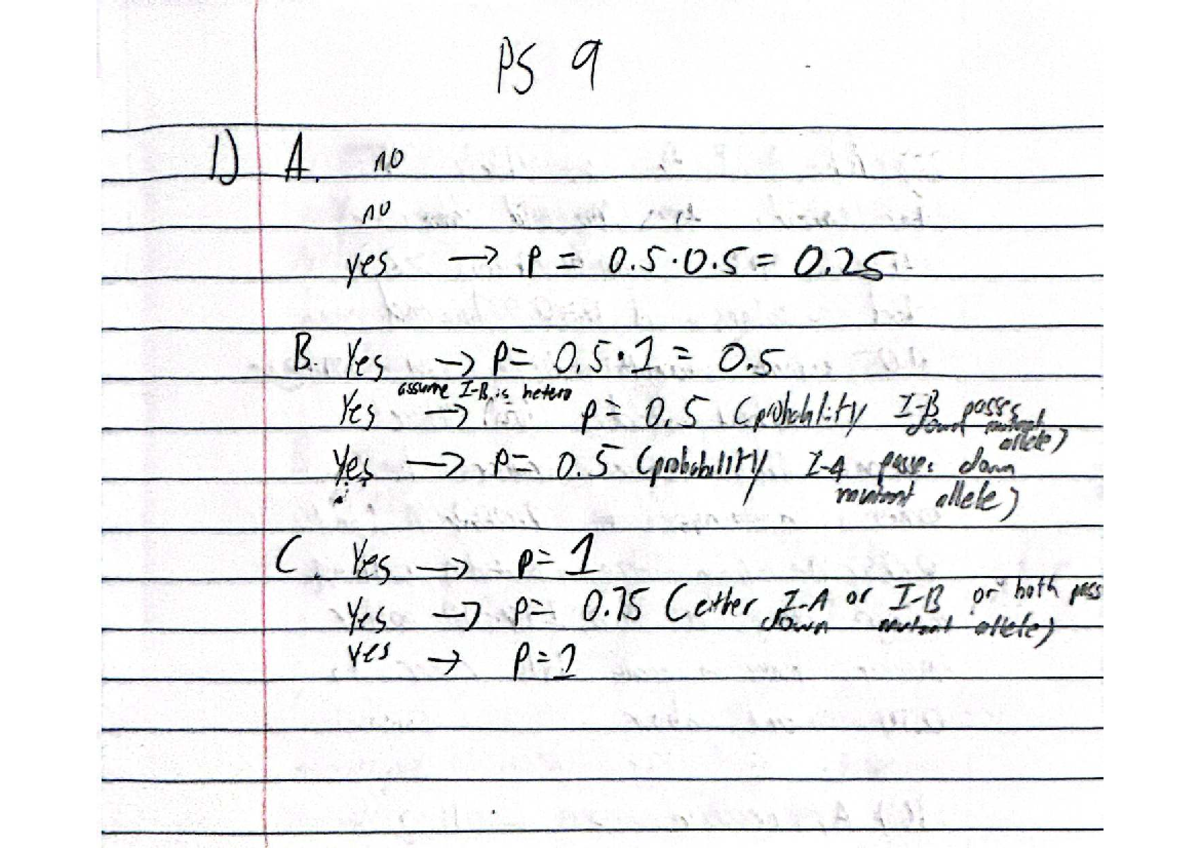 PS 9
1) A. no
no
yes → p = 0.5·0.5 = 0.25
B. Yes → p = 0.5·1 = 0.5
assume I-B is hetero
Yes → p = 0.5 (probability I-B passes down mutant allele)
Yes → p = 0.5 (probability I-A passes down mutant allele)
C. Yes → p = 1
Yes → p = 0.75 (either I-A or I-B or both pass down mutant allele)
Yes → p = 1